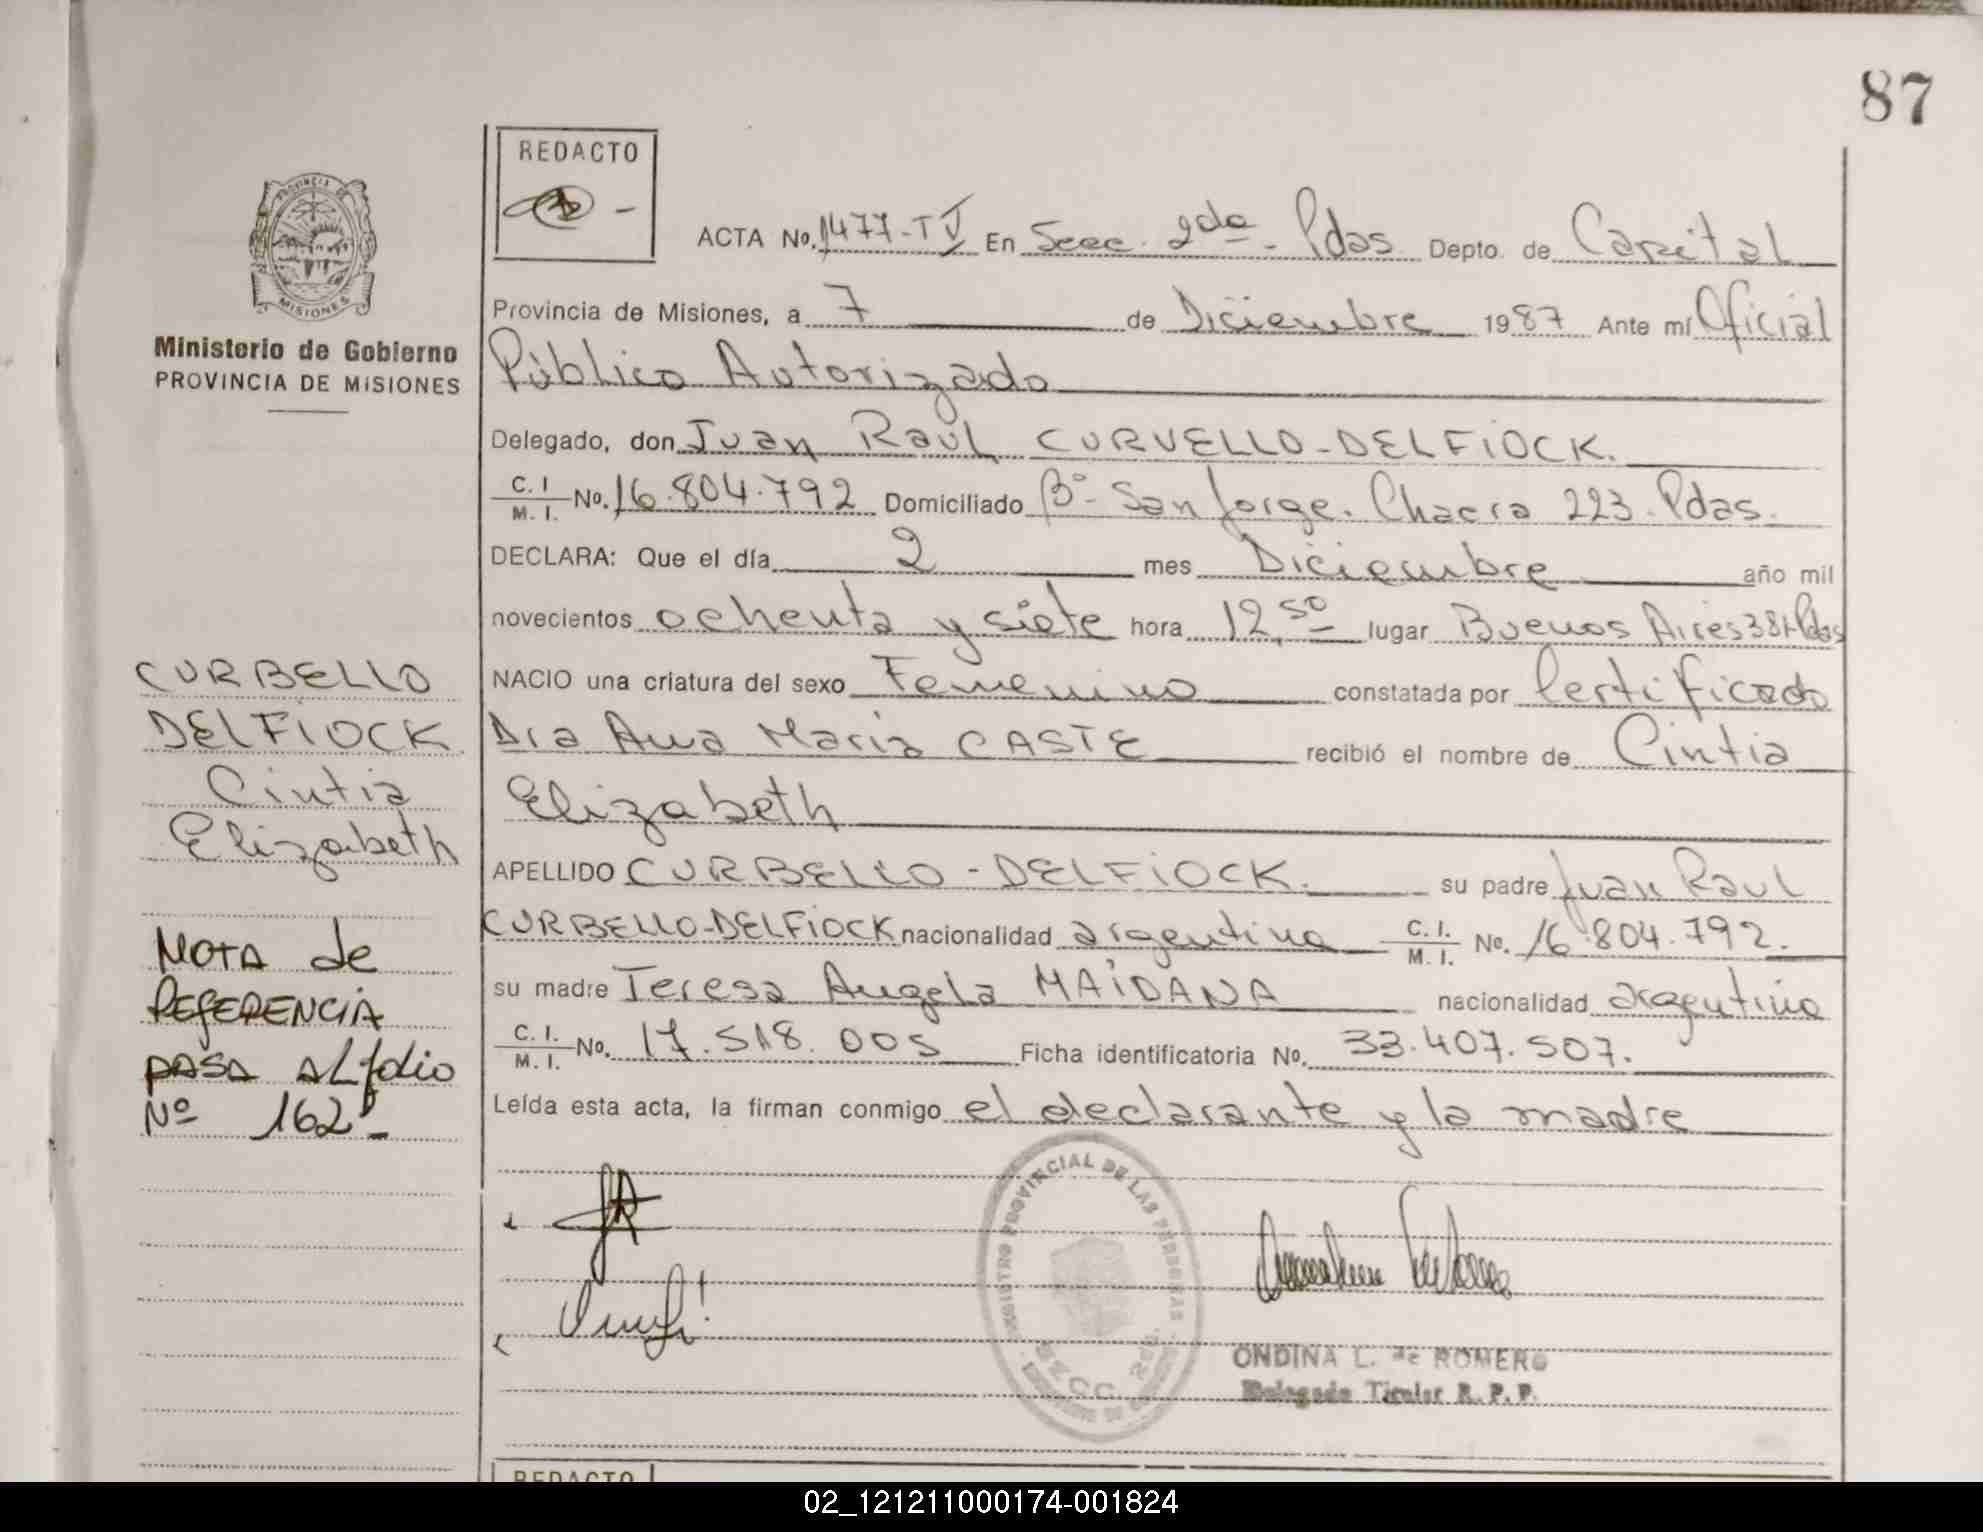 87
REDACTO
PROVINCIA DE
MISIONES
Ministerio de Gobierno
PROVINCIA DE MISIONES
ACTA No. 1477-TV En Secc. 2da - Pdas. Depto. de Capital
Provincia de Misiones, a 7 de Diciembre 1987 Ante mí Oficial
Público Autorizado
Delegado, don Juan Raúl CURVELLO-DELFIOCK.
C. I. M. I. No. 16.804.792 Domiciliado Bº- San Jorge. Chacra 223. Pdas.
DECLARA: Que el día 2 mes Diciembre año mil
novecientos ochenta y siete hora 12,50 lugar Buenos Aires 381-Pdas
NACIO una criatura del sexo Femenino constatada por Certificado
Dra Ana María CASTE recibió el nombre de Cintia
Elizabeth
APELLIDO CURBELLO - DELFIOCK. su padre Juan Raul
CURBELLO-DELFIOCK nacionalidad argentina C. I. M. I. No. 16.804.792.
su madre Teresa Angela MAIDANA nacionalidad argentina
C. I. M. I. No. 17.518.005 Ficha identificatoria No. 33.407.507.
Leída esta acta, la firman conmigo el declarante y la madre
CURBELLO
DELFIOCK
Cintia
Elizabeth
NOTA de
REFERENCIA
PASA AL folio
Nº 162-
REGISTRO PROVINCIAL DE LAS PERSONAS
SECC. 2da.
ONDINA L. de ROMERO
Delegada Titular R. P. P.
REDACTO
02_121211000174-001824